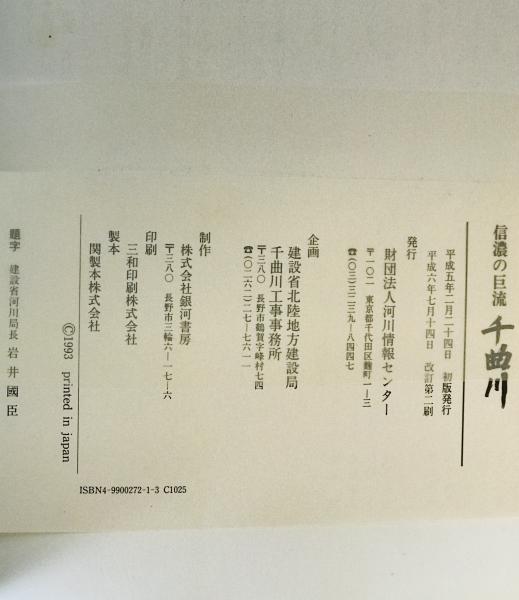 信濃の巨流 千曲川
平成五年二月二十四日 初版発行
平成六年七月十四日 改訂第二刷
発行
財団法人河川情報センター
〒一〇二 東京都千代田区麹町一ー三
☎(〇三)三二三九ー八四四七
企画
建設省北陸地方建設局
千曲川工事事務所
〒三八〇 長野市鶴賀字峰村七四
☎(〇二六二)二七ー七六一一
制作
株式会社銀河書房
〒三八〇 長野市三輪六ー一七ー六
印刷
三和印刷株式会社
製本
関製本株式会社
©1993 printed in japan
題字 建設省河川局長 岩井國臣
ISBN4-9900272-1-3 C1025